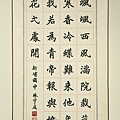 颯颯西風滿院栽蕊
寒香冷蝶難來他年
我若為青帝報與桃
花一處開
新埔國中 林